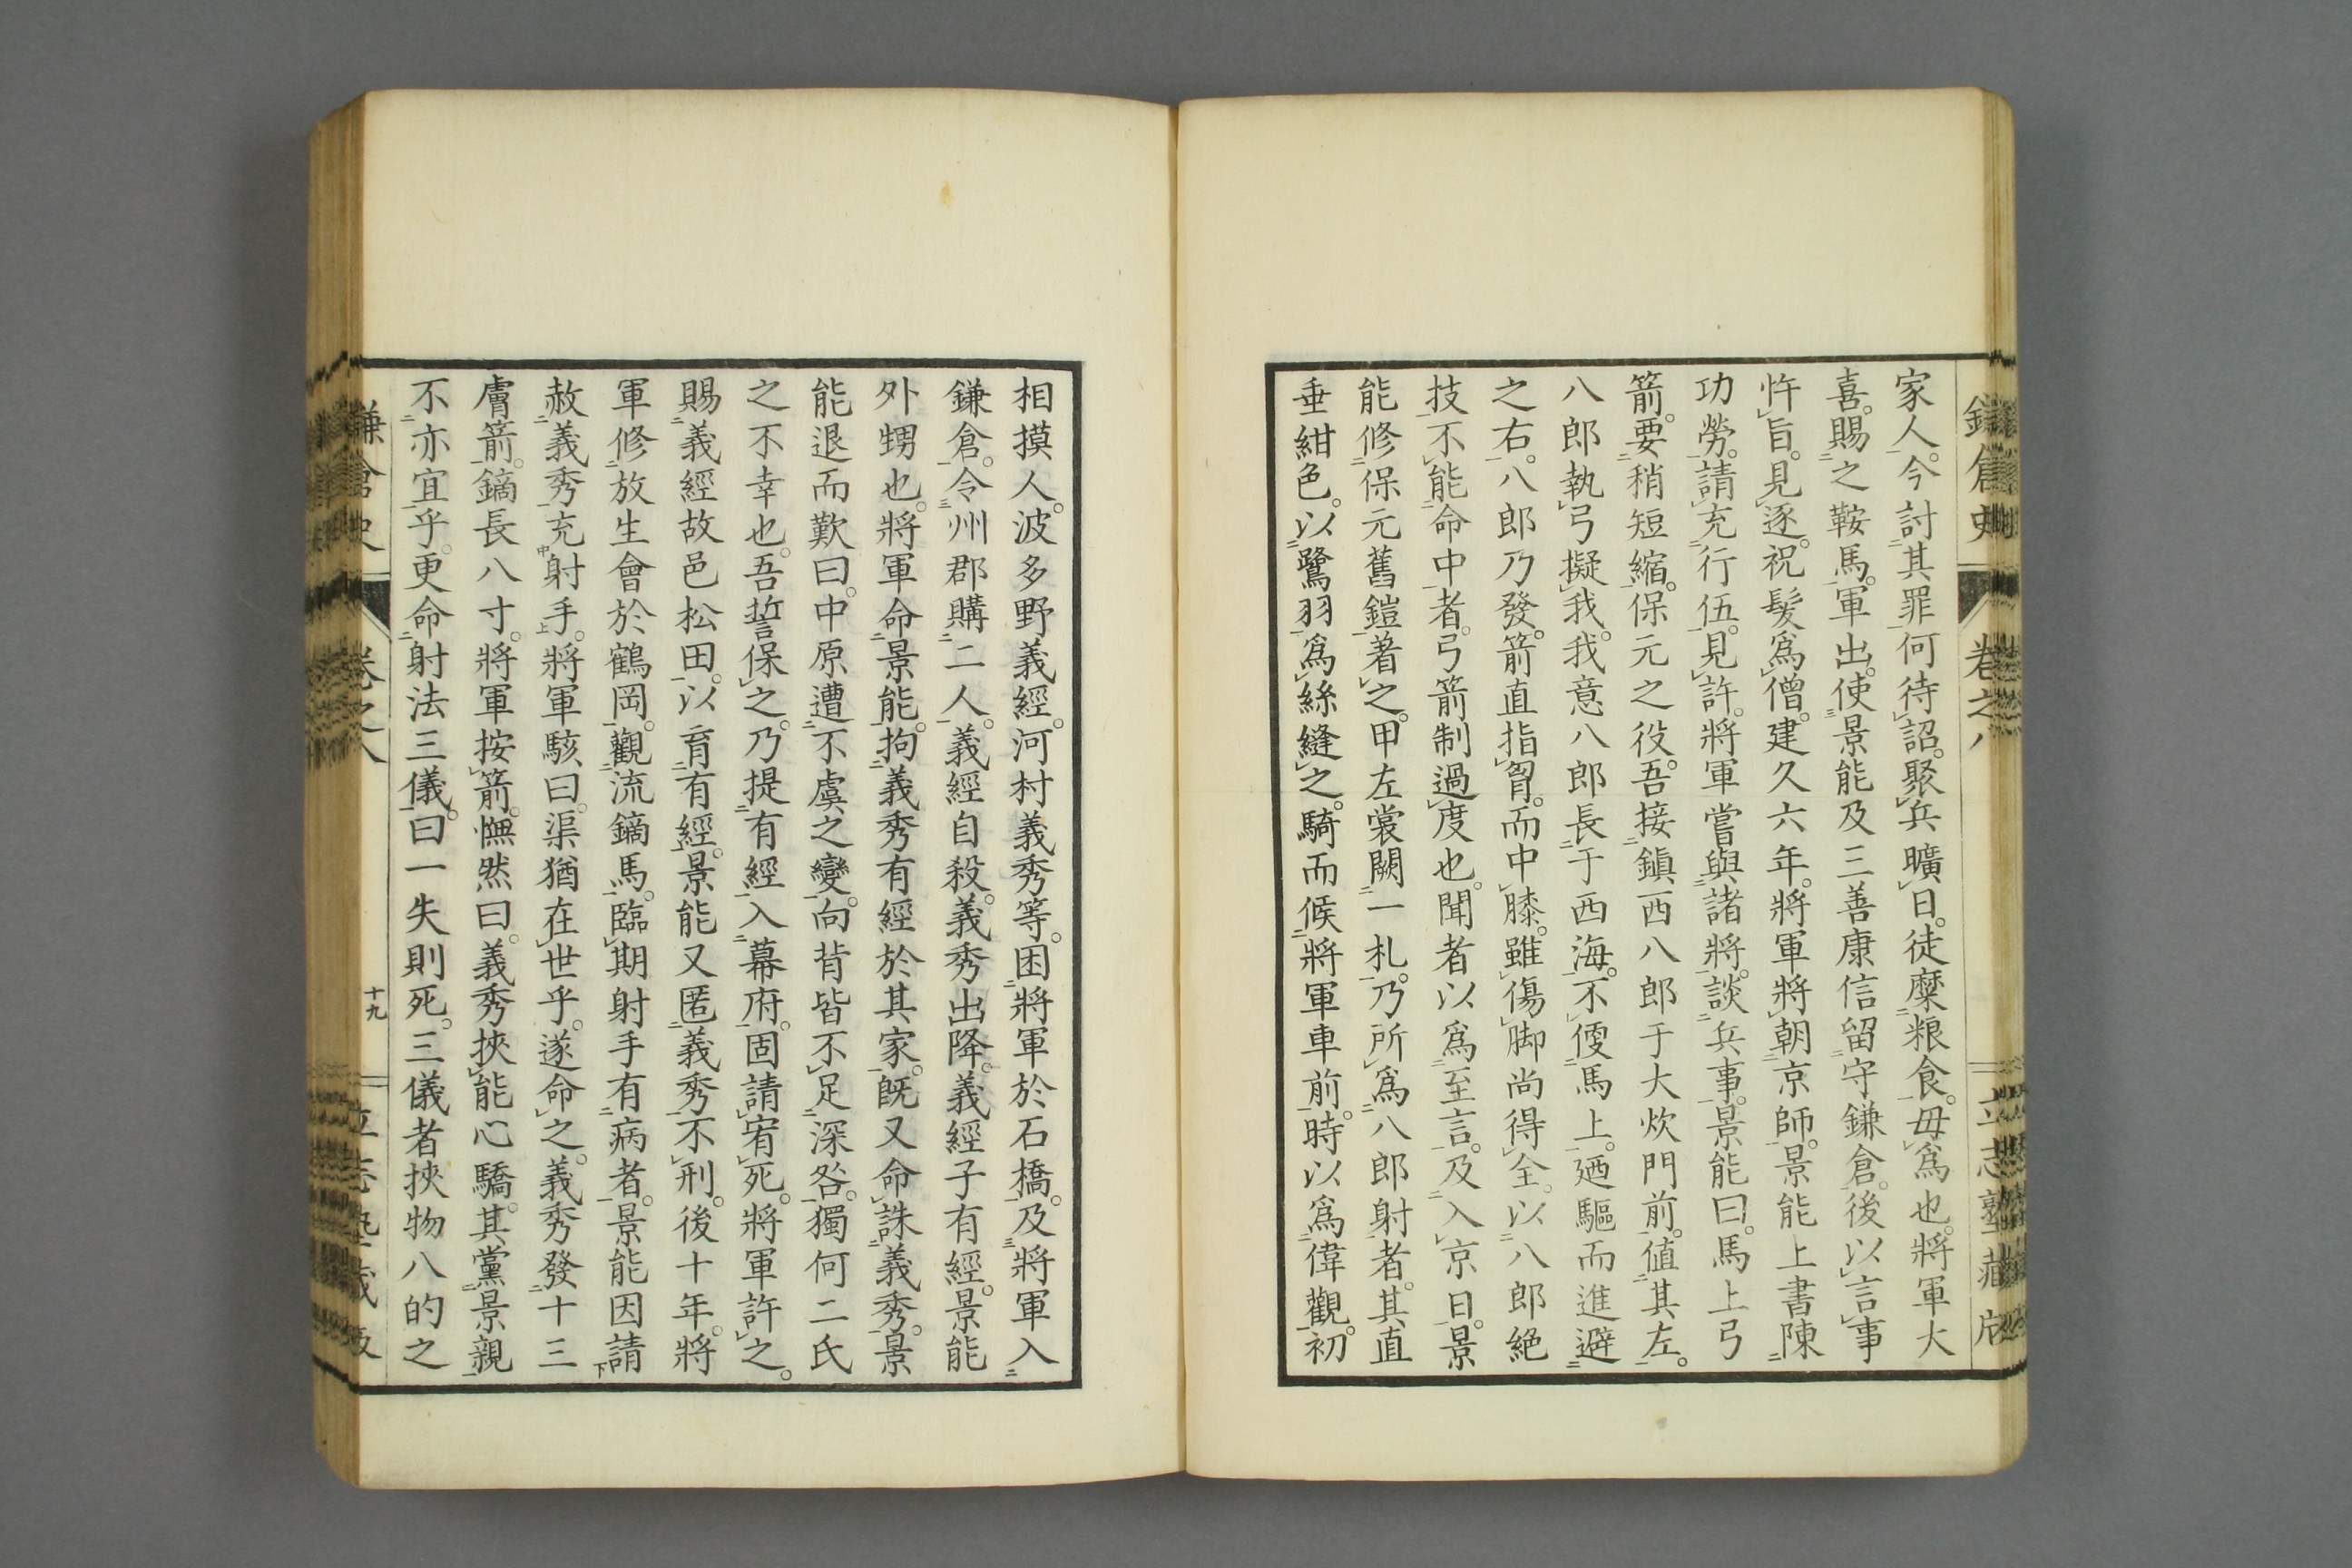 鎌倉史 卷之八 立志塾藏版
家人。今討其罪何待詔。聚兵曠日。徒糜粮食。毋爲也。將軍大
喜。賜之鞍馬。軍出。使景能及三善康信留守鎌倉。後以言事
忤旨。見逐。祝髮爲僧。建久六年。將軍將朝京師。景能上書陳
功勞。請充行伍。見許。將軍嘗與諸將。談兵事。景能曰。馬上弓
箭。要稍短縮。保元之役。吾接鎮西八郎于大炊門前。値其左。
八郎執弓擬我。我意八郎長于西海。不便馬上。廼驅而進避
之右。八郎乃發。箭直指胷。而中膝。雖傷脚尚得全。以八郎絕
技不能命中者。弓箭制過度也。聞者以爲至言。及入京日。景
能修保元舊鎧著之。甲左裳闕一札。乃所爲八郎射者。其直
垂紺色。以鷺羽爲絲縫之。騎而候將軍車前。時以爲偉觀。初
相摸人。波多野義經。河村義秀等。困將軍於石橋。及將軍入
鎌倉。令州郡購二人。義經自殺。義秀出降。義經子有經。景能
外甥也。將軍命景能。拘義秀有經於其家。既又命誅義秀。景
能退而歎曰。中原遭不虞之變。向背皆不足深咎。獨何二氏
之不幸也。吾誓保之。乃提有經入幕府。固請宥死。將軍許之。
賜義經故邑松田。以育有經。景能又匿義秀不刑。後十年。將
軍修放生會於鶴岡。觀流鏑馬。臨期射手有病者。景能因請
赦義秀充射手。將軍駭曰。渠猶在世乎。遂命之。義秀發十三
膚箭。鏑長八寸。將軍按箭。憮然曰。義秀挾能心驕。其黨景親
不亦宜乎。更命射法三儀。曰一失則死。三儀者挾物八的之
鎌倉史 卷之八 十九 立志塾藏版